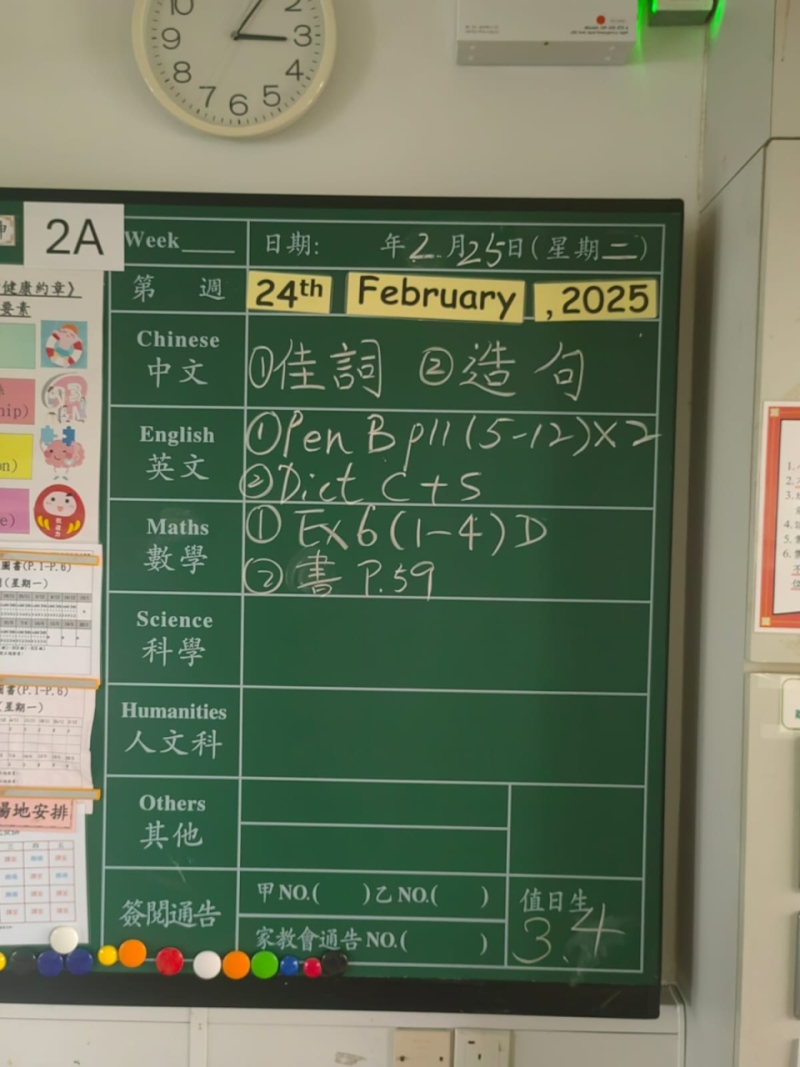 10
2
9
3
8
4
7
6
5
2A
Week
日期: 年2月25日(星期二)
第 週
24th February, 2025
Chinese
中文
①佳詞 ②造句
English
英文
①Pen B p11(5-12)×2
②Dict C+S
Maths
數學
① Ex6(1-4)D
②書 P.59
Science
科學
Humanities
人文科
Others
其他
簽閱通告
甲NO.( )乙NO.( )
家教會通告NO.( )
值日生
3.4
健康約章》
要素
hip)
on)
e)
圖書(P.1-P.6)
(星期一)
圖書(P.1-P.6)
(星期一)
場地安排
1.
2.
3.
4.
5.
6.